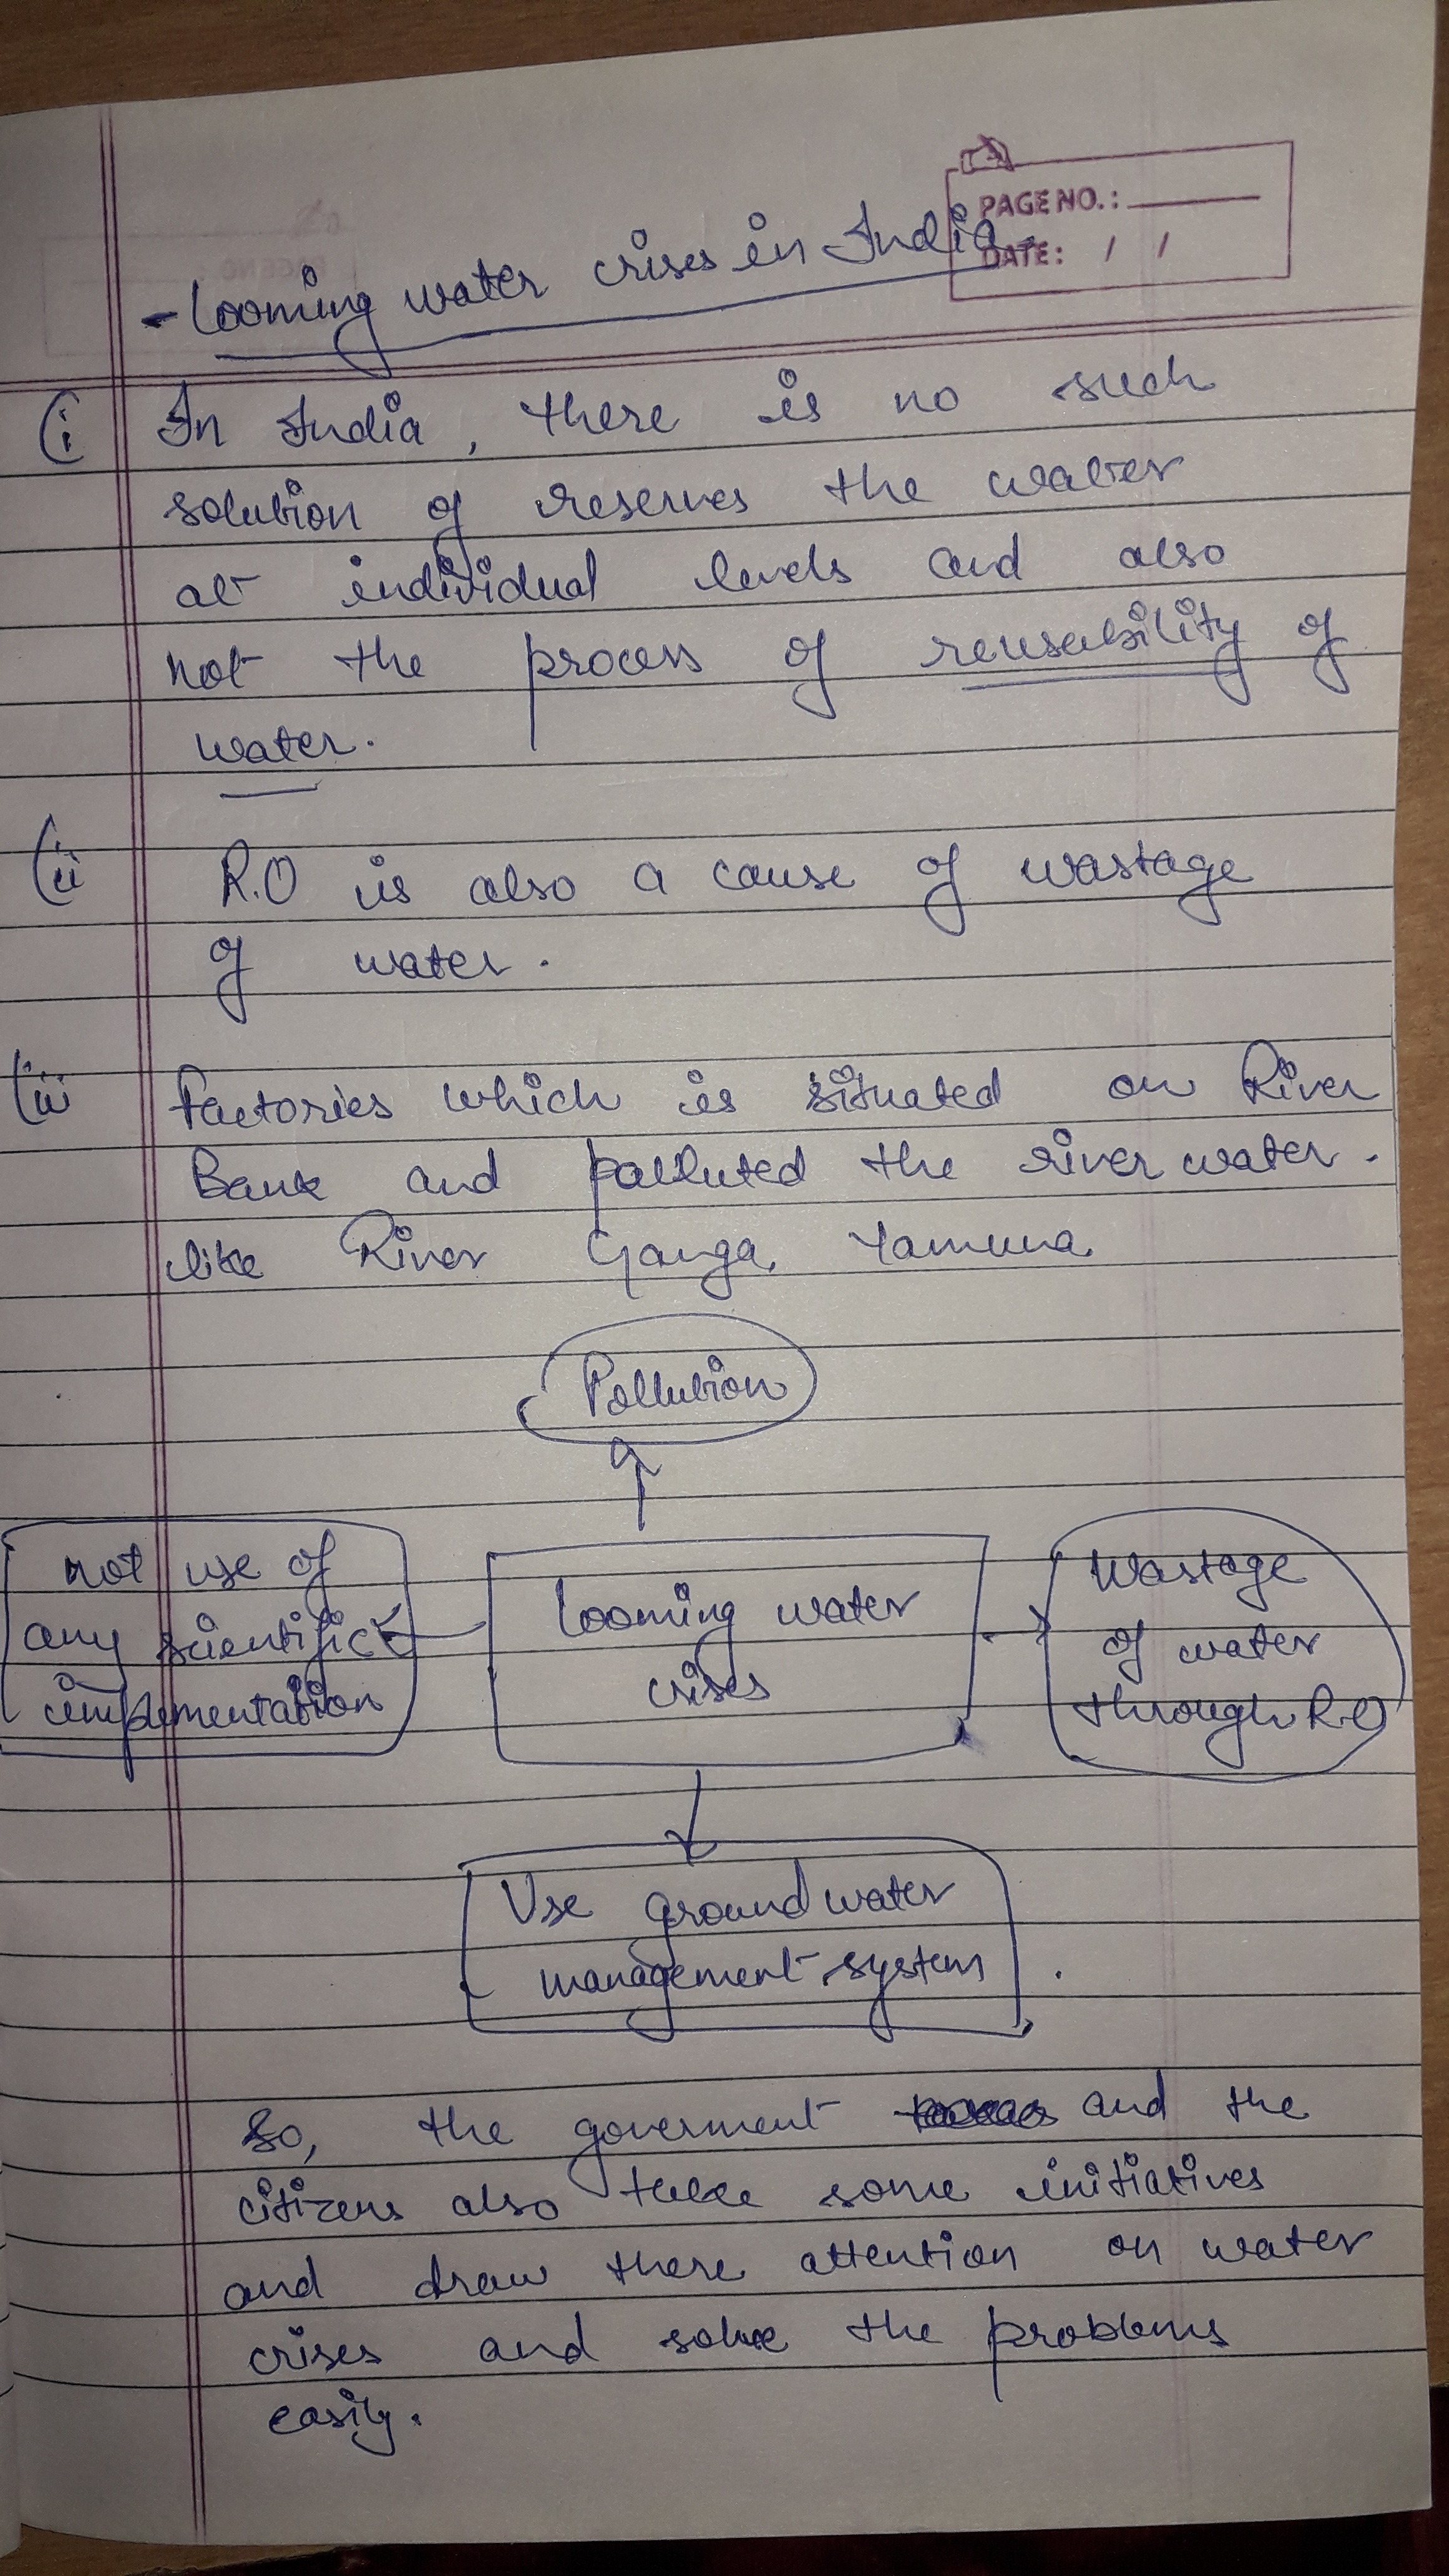 PAGE NO.:
DATE: / /
- Looming water crises in India.
(i In India, there is no such
solution of reserves the water
at individual levels and also
not the process of reusability of
water.
(ii R.O is also a cause of wastage
of water.
(iii factories which is situated on River
Bank and polluted the river water.
like River Ganga, Yamuna
Pollution
not use of
any scientific
implementation
looming water
crises
Wastage
of water
through R.O
Use ground water
management system.
So, the goverment and the
citizens also take some initiatives
and draw there attention on water
crises and solve the problems
easily.